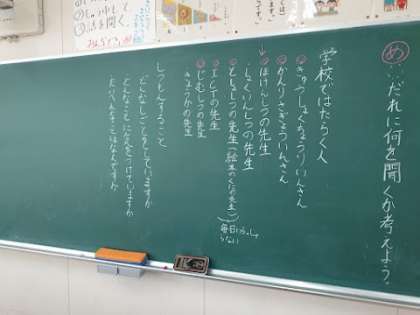 め
だれに何を聞くか考えよう。
学校ではたらく人
きゅうしょくちょうりいんさん
かんりさぎょういんさん
ほけんしつの先生
しょくいんしつの先生
としょしつの先生(絵本のくにの先生)
毎日いらっしゃらない
ALTの先生
じむしつの先生
きょうかの先生
しつもんすること
どんなしごとをしていますか
どんなことに気をつけていますか
たいへんなことはなんですか